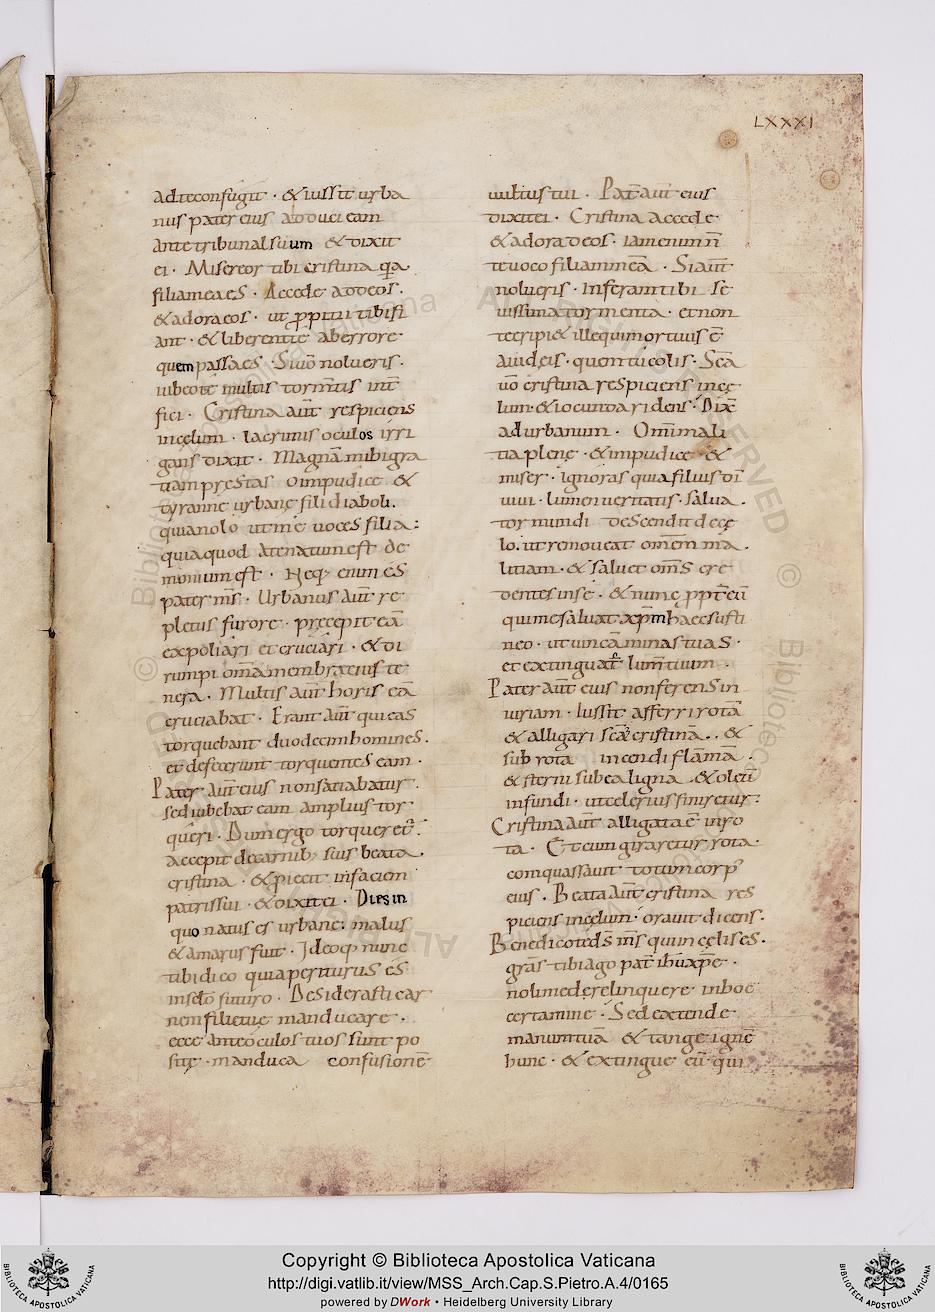 LXXXI
adteconfugit · & iussit urba
nus pater eius adduci eam
ante tribunal suum & dixit
ei · Misereor tibi cristina q̄a
filia mea es · Accede ad deos ·
& adora eos · ut ꝓpitii tibi si
ant · & liberent te ab errore
quem passa es · Si uō nolueris ·
iubeo te multis torm̄tis int̄
fici · Cristina aūt respiciens
in cęlum · lacrimis oculos irri
gans dixit · Magnā mihi gra
tiam prestas o impudice &
tyranne urbane fili diaboli ·
quia nolo ut me uoces filia :
quia quod a te natum est de
monium est · Neq; enim es
pater m̄s · Urbanus aūt re
pletus furore · pręcepit eā
expoliari et cruciari · & di
rumpi om̄a membra eius te
nera · Multis aūt horis eā
cruciabat · Erant aūt qui eas
torquebant duodecim homines ·
et defecerunt torquentes eam ·
Pater aūt eius non satiabatur ·
sed iubebat eam amplius tor
queri · Dum ergo torqueret᷑ :
accepit de carnib; suis beata
cristina · & piecit in faciem
patris sui · & dixit ei · Dies in
quo natus es urbane · malus
& amarus fuit · Ideoq; nunc
tibi dico quia periturus es
in sclō futuro · Desiderasti car
nem filie tuę manducare ·
ecce ante oculos tuos sunt po
sitę · manduca confusionē
uultus tui · Pat̄ aūt eius
dixit ei · Cristina accede
& adora deos · iam enim n̄
te uoco filiam meā · Si aūt
nolueris · Inferam tibi se
uissima tormenta · et non
te eripi& ille qui mortuus ē
a iudeis · quem tu colis · Sc̄a
uō cristina respiciens in cę
lum · & iocunda ridens · Dix̄
ad urbanum · Omī mali
tia plenę · & impudice · &
miser · ignoras quia filius dī
uiui · lumen ueritatis · salua
tor mundi descendit de cę
lo · ut remoueat omēm ma
litiam · & saluet om̄s cre
dentes in se · & nunc ꝓpt̄ eū
qui me saluat xp̄m haec susti
neo · ut uincā minas tuas ·
et extinguat᷑ lum̄ tuum ·
Pater aūt eius non ferens in
iuriam · Iussit afferri rotā
& alligari sc̄ā cristinā · &
sub rota incendi flāmā ·
& sterni subea ligna · & oleū
infundi · ut celerius finiretur :
Cristina aūt alligata ē in ro
ta · Et cum giraretur rota ·
comquassauit totum corpꝰ
eius · Beata aūt cristina res
piciens in cęlum · orauit dicens ·
Benedico te dś m̄s qui in cęlis es ·
grās tibi ago pat̄ ihū xp̄e ·
noli me derelinquere in hoc
certamine · Sed extende
manum tuā & tange ignē
hunc · & extingue eū · qui
Copyright © Biblioteca Apostolica Vaticana
http://digi.vatlib.it/view/MSS_Arch.Cap.S.Pietro.A.4/0165
powered by DWork • Heidelberg University Library